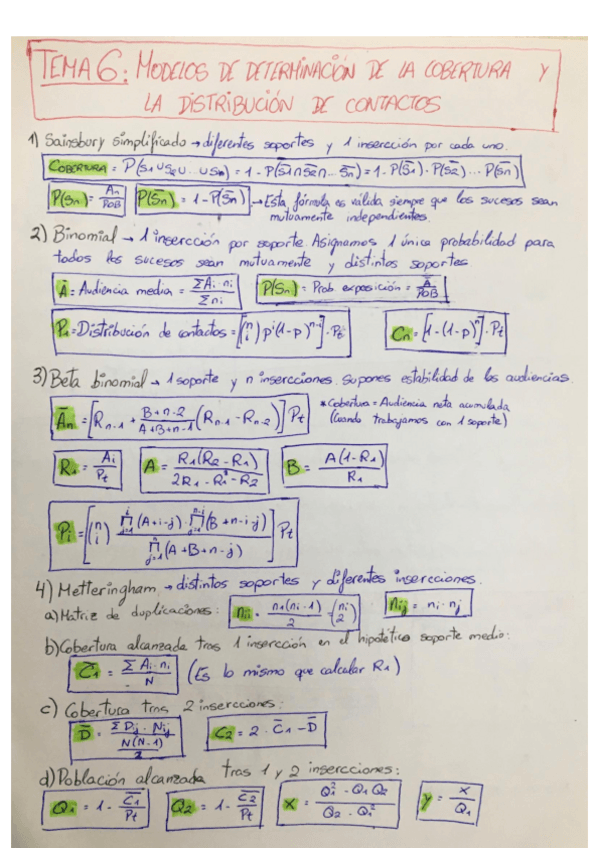 TEMA 6: MODELOS DE DETERMINACIÓN DE LA COBERTURA Y
LA DISTRIBUCIÓN DE CONTACTOS
1) Sainsbury simplificado → diferentes soportes y 1 inserción por cada uno.
COBERTURA = P(S1 ∪ S2 ∪ ... ∪ Sn) = 1 - P(S̄1 ∩ S̄2 ∩ ... S̄n) = 1 - P(S̄1) · P(S̄2) ... P(S̄n)
P(Sn) = An / POB P(S̄n) = 1 - P(Sn) → Esta fórmula es válida siempre que los sucesos sean
mutuamente independientes.
2) Binomial → 1 inserción por soporte Asignamos 1 única probabilidad para
todos los sucesos sean mutuamente y distintos soportes
Ā = Audiencia media = ΣAi · ni / Σni P(Sn) = Prob exposición = Ā / POB
Pi = Distribución de contactos = [(n i) p^i (1-p)^(n-i)] · Pt Cn = [1 - (1-p)^n] · Pt
3) Beta binomial → 1 soporte y n insercciones. Supones estabilidad de las audiencias.
Ān = [Rn-1 + B+n-2 / A+B+n-1 (Rn-1 - Rn-2)] Pt *Cobertura = Audiencia neta acumulada
(Cuando trabajamos con 1 soporte)
R1 = Ai / Pt A = R1(R2 - R1) / 2R1 - R1² - R2 B = A(1-R1) / R1
Pi = [(n i) ∏(A+i-j) · ∏(B+n-i-j) / ∏(A+B+n-j)] Pt
4) Metteringham → distintos soportes y diferentes insercciones.
a) Matriz de duplicaciones: nii = n1(ni-1) / 2 = (ni 2) nij = ni · nj
b) Cobertura alcanzada tras 1 inserción en el hipotético soporte medio:
C̄1 = ΣAi · ni / N (Es lo mismo que calcular R1)
c) Cobertura tras 2 insercciones:
D̄ = ΣDij · Nij / N(N-1) / 2 C2 = 2 · C̄1 - D̄
d) Población alcanzada tras 1 y 2 insercciones:
Q1 = 1 - C̄1 / Pt Q2 = 1 - C̄2 / Pt x = Q1² - Q1 Q2 / Q2 - Q1² y = x / Q1